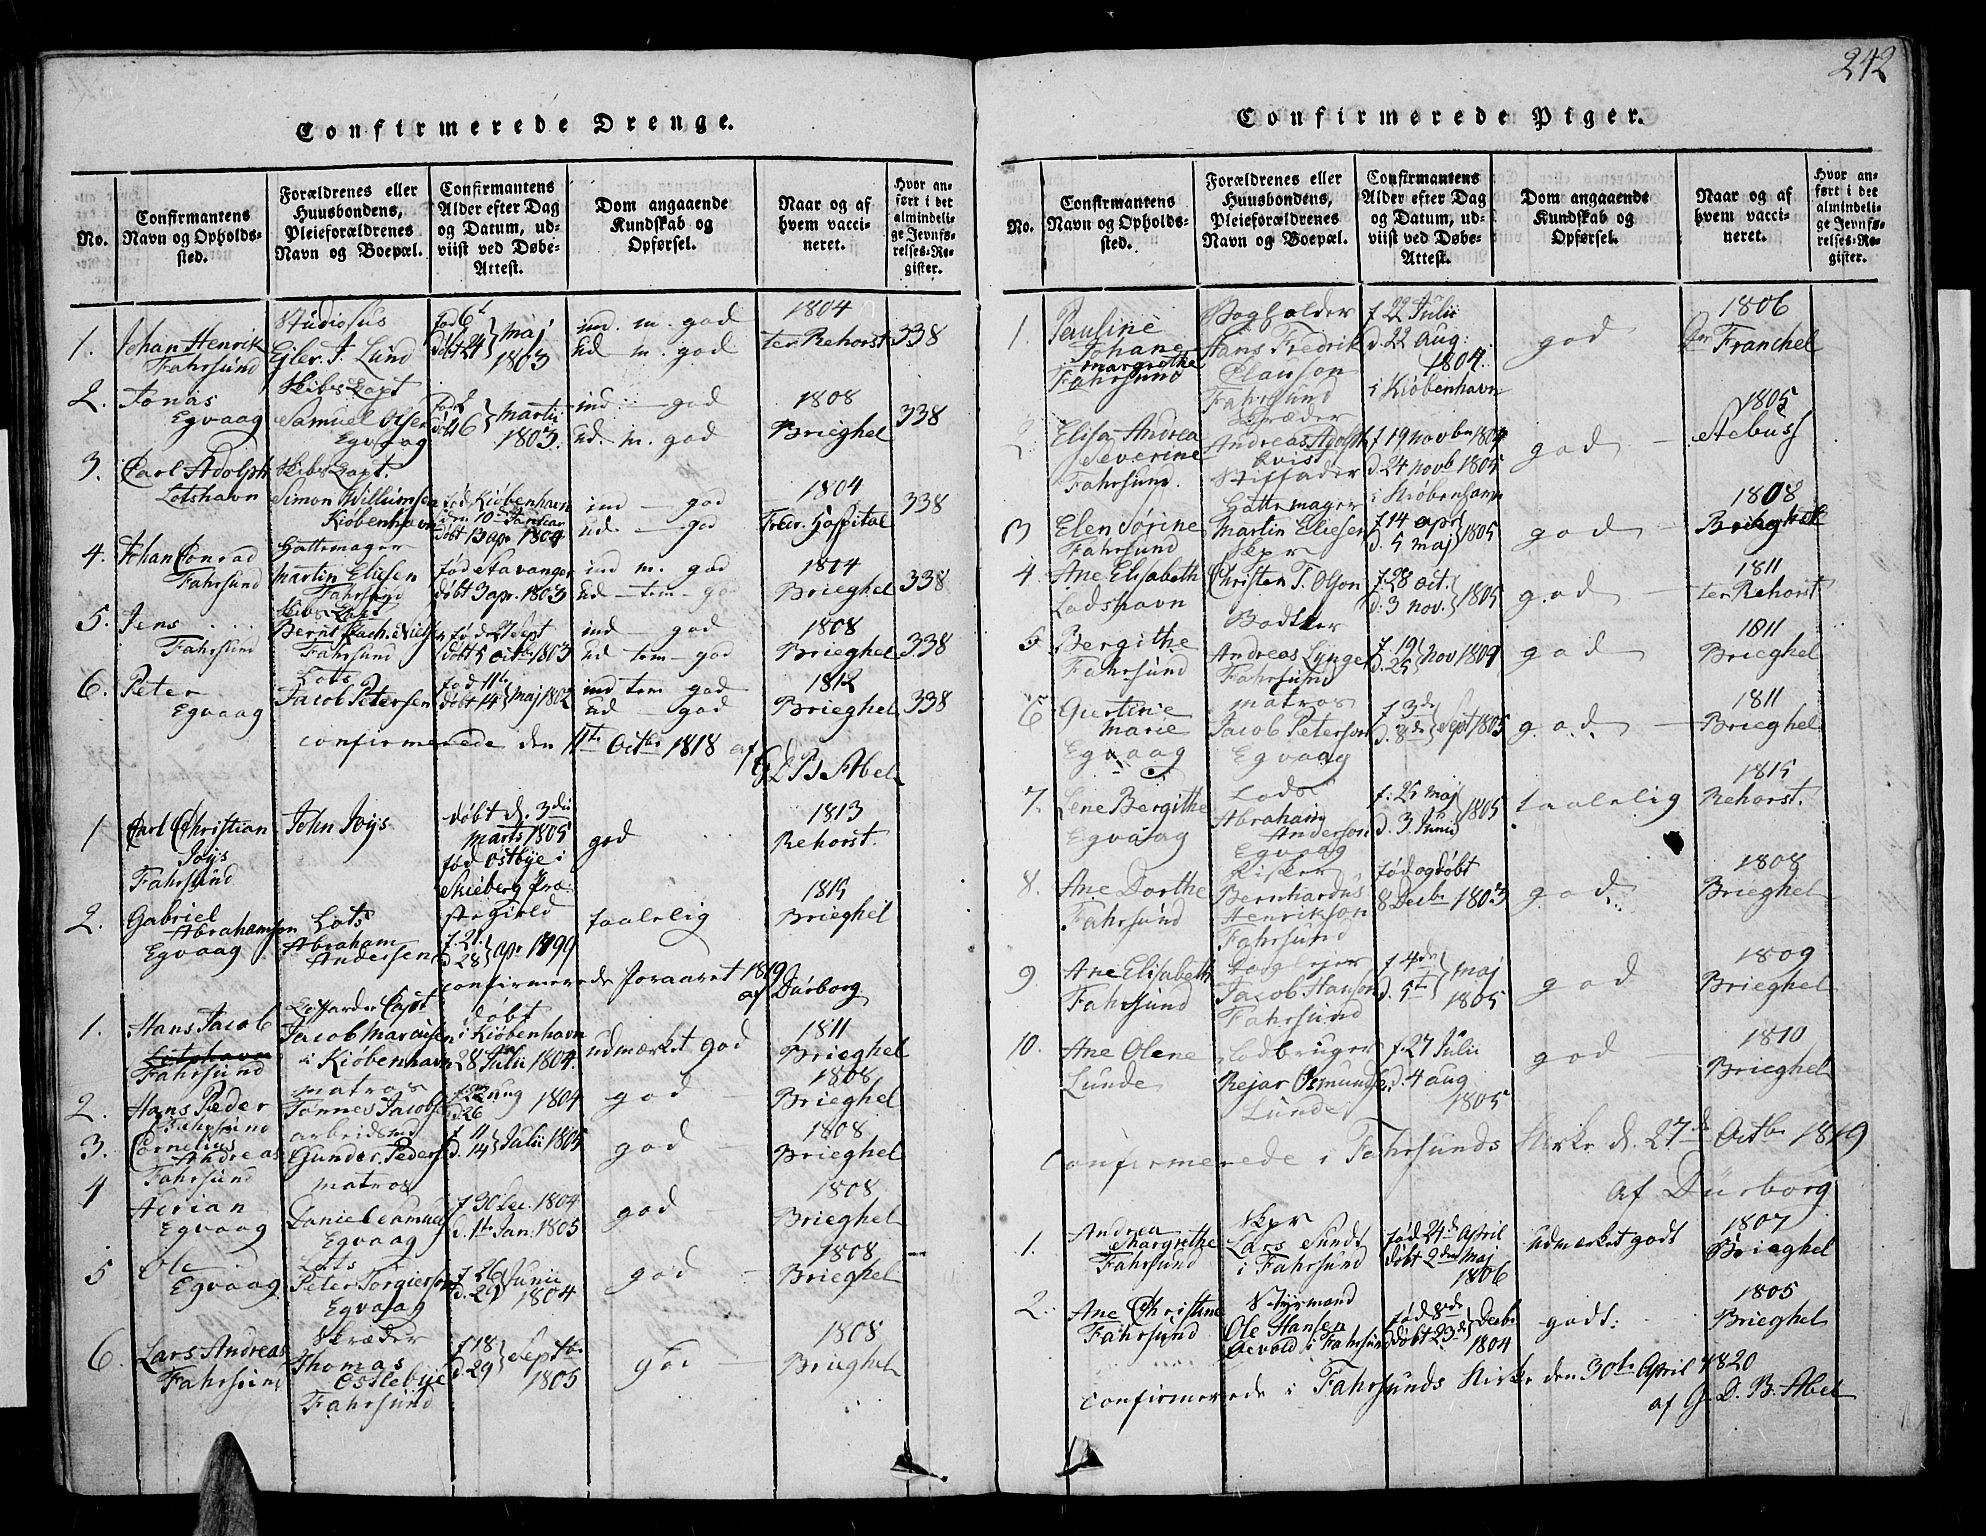 242
Confirmerede Drenge.
No.
Confirmantens Navn og Opholds-sted.
Forældrenes eller Huusbondens, Pleieforældrenes Navn og Boepæl.
Confirmantens Alder efter Dag og Datum, ud-viist ved Døbe-Attest.
Dom angaaende Kundskab og Opførsel.
Naar og af hvem vacci-neret.
Hvor an-ført i det almindeli-ge Jevnfø-relses-Re-gister.
1. Johan Henrik Fahrsund
Studiosus Ejler J. Lund
fød 6t døbt 24 maj 1803
ind. m. god
ud m. god
1804 ter Rehorst
338
2. Tonas Egvaag
Skibs Capt Samuel Olsen Egvaag
døbt 6 martii 1803.
ind — god
ud. m. god
1808 Brieghel
338
3. Carl Adolph Lotshavn
Skibs Capt. Simon Willumsen Kiøbenhavn
fød Kiøbenhavn den 10 Januar døbt 13 apr 1804
ind — god
ud — god
1804 Freder. Hospital
338
4. Johan Conrad Fahrsund
Hattemager Martin Eliesen Fahrsund
fød Stavanger døbt 3 apr. 1803
ind m. god
ud — tem — god
1804 Brieghel
338
5. Jens Fahrsund
Skibs Capt Bernt Bach. Nielsen Fahrsund
fød 27 Sept døbt 5 octbr 1803
ind — god
ud tem — god
1808 Brieghel
338
6. Peter Egvaag
Lots Jacob Petersen
fød 11te døbt 14 maj 1802
ind tem god
ud — god
1812 Brieghel
338
confirmerede den 11te Octbr 1818 af G D B Abel
1 Carl Christian Joys Fahrsund
John Joys
døbt d. 3die marts 1805 fød Ostbye i Skieberg Præ-stegield
god
1813 Rehorst.
2. Gabriel Abrahamsen Egvaag
Lots Abraham Andersen
f. 21. d. 28 apr 1799
taalelig
1815 Brieghel
confirmerede foraaret 1819 af Dürborg
1. Hans Jacob Lotshavn Fahrsund
Coffardie Capt Jacob Marcusen i Kiøbenhavn
døbt i Kiøbenhavn 28 Julii 1804.
udmærket god
1811 Brieghel
2. Hans Peder Fahrsund
matros Tønnes Jacobsen
d. 26 aug 1804
god
1808 Brieghel
3. Cornelius Andreas Fahrsund
arbeidsmd Gunder Peders
f 11 d. 14 Julii 1805
god
1808 Brieghel
4 Adrian Egvaag
matros Daniel Samuels Egvaag
f 30 Dec. 1804 d. 1te Jan. 1805
god
1808 Brieghel
5 Ole Egvaag
Lots Peter Torgiersen Egvaag
f 26 d. 29 Junii 1804
god
1808 Brieghel
6. Lars Andreas Fahrsund
Skræder Thomas Ostebye Fahrsund
f 18 d. 29 Septbr 1805
god
1808 Brieghel
Confirmerede Piger.
No.
Confirmantens Navn og Opholds-sted.
Forældrenes eller Huusbondens, Pleieforældrenes Navn og Boepæl.
Confirmantens Alder efter Dag og Datum, ud-viist ved Døbe-Attest.
Dom angaaende Kundskab og Opførsel.
Naar og af hvem vacci-neret.
Hvor an-ført i det almindeli-ge Jevnfø-relses-Re-gister.
1. Pauline Johane margrethe Fahrsund
Bogholder Hans Fredrik Clauson Fahrsund
f. 22 Julii d. 22 aug: 1804. i Kiøbenhavn
god
1806 Franchel
2 Elisa Andrea Severine Fahrsund.
Skræder Andreas Adolph Qvist
f 19 novbr 1804 d. 24 novb 1805 i Kiøbenhavn
god
1805
3 Elen Sørine Fahrsund
Hattemager Martin Eliesen
f. 14 apr d. 5 maj 1805
god
1808 Brieghel
4. Ane Elisabeth Lodshavn
Skpr Christen T. Olson
f. 28 oct. d. 3 nov. 1805
god
1811 ter Rehorst
5 Bergithe Fahrsund
Bødker Andreas Lynge Fahrsund
f. 19 d. 25 nov 1804
god
1811 Brieghel
6 Gustinie Marie Egvaag
matros Jacob Peterson Egvaag
f 3de d. 8de Sept 1805
god
1811 Brieghel
7. Lene Bergithe Egvaag
Lods Abraham Anderson Egvaag
f: 25 maj d. 3 Junii 1805
taalelig
1815 Rehorst.
8. Ane Dorthe Fahrsund
Fisker Bernhardus Henrikson Fahrsund
fød og døbt 8 Decbr 1803
god
1808 Brieghel
9 Ane Elisabeth Fahrsund
Daglejer Jacob Hanson Fahrsund
f 4de d. 5te maj 1805
god
1809 Brieghel
10. Ane Olene Lunde
Lodbruger Rejar Osmunds Lunde
f. 27 Julii d. 4 aug 1805
god
1810 Brieghel
Confirmerede i Fahrsunds Kirke d. 27de Octbr 1819
af Dürborg
1. Andrea Margrethe Fahrsund
Skpr Lars Sundt i Fahrsund
fød 24de April døbt 2den Maj 1806
udmærket godt
1807 Brieghel
2. Ane Christine Fahrsund
Styrmand Ole Hansen i Fahrsund
fød 8de døbt 23de Decbr 1804
godt:
1805 Brieghel
confirmerede i Fahrsunds Kirke den 30te April 1820
af G. D. B. Abel